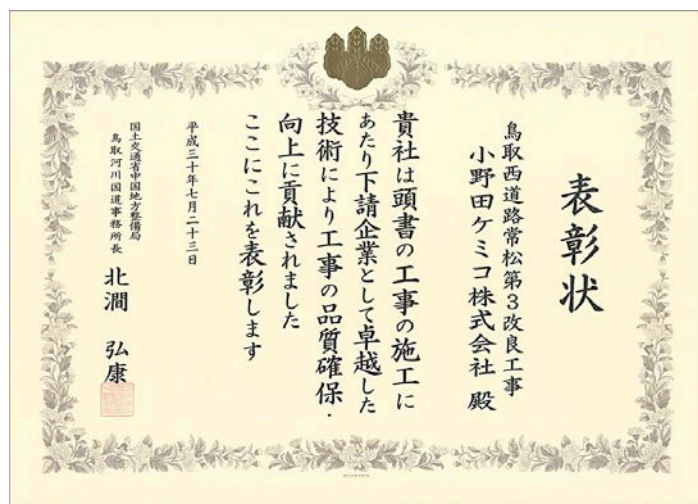 表彰状
鳥取西道路常松第3改良工事
小野田ケミコ株式会社 殿
貴社は頭書の工事の施工に
あたり下請企業として卓越した
技術により工事の品質確保・
向上に貢献されました
ここにこれを表彰します
平成三十年七月二十三日
国土交通省中国地方整備局
鳥取河川国道事務所長
北澗 弘康